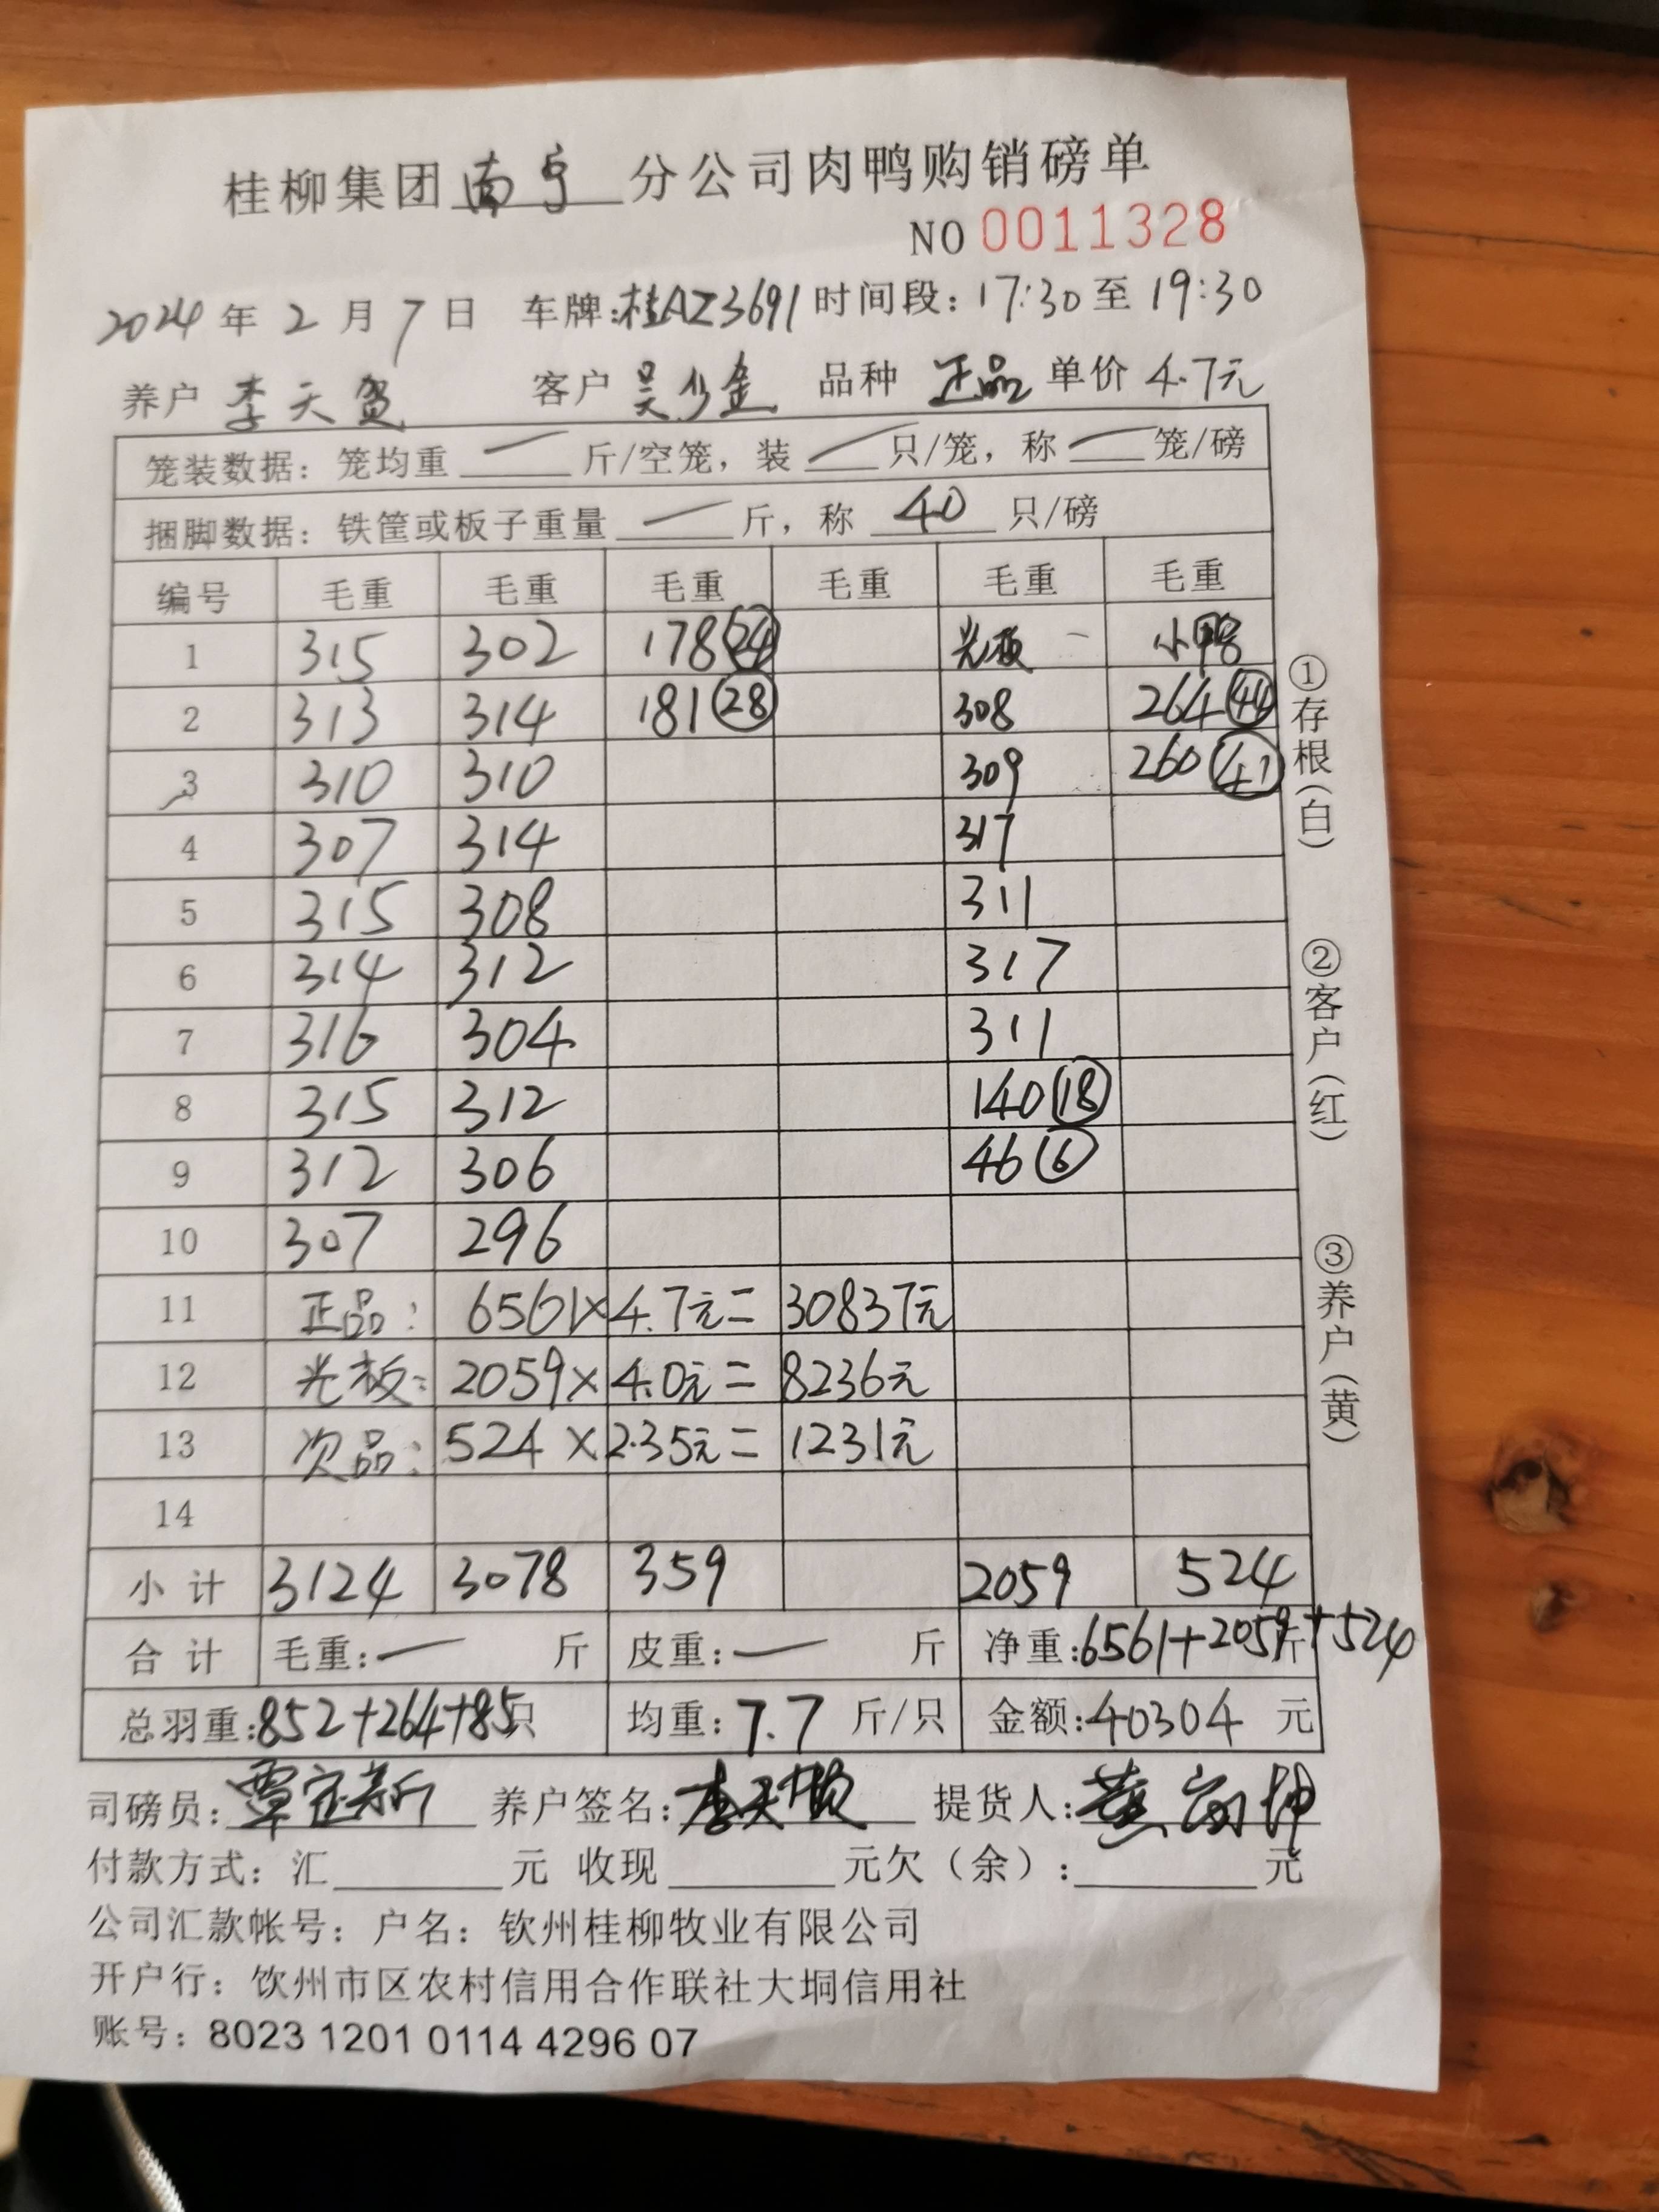 桂柳集团 南宁 分公司肉鸭购销磅单
NO 0011328
2024 年 2 月 7 日 车牌:桂AZ3691 时间段: 17:30 至 19:30
养户 李天贺 客户 吴少金 品种 正品 单价 4.7元
笼装数据: 笼均重 — 斤/空笼, 装 — 只/笼, 称 — 笼/磅
捆脚数据: 铁筐或板子重量 — 斤, 称 40 只/磅
编号 毛重 毛重 毛重 毛重 毛重 毛重
1 315 302 178 (24) 光板 - 小鸭
2 313 314 181 (28) 308 264 (44)
3 310 310 309 260 (41)
4 307 314 317
5 315 308 311
6 314 312 317
7 316 304 311
8 315 312 140 (18)
9 312 306 46 (6)
10 307 296
11 正品: 6561×4.7元= 30837元
12 光板: 2059×4.0元= 8236元
13 次品: 524×2.35元= 1231元
14
小计 3124 3078 359 2059 524
合计 毛重:— 斤 皮重:— 斤 净重:6561+2059+524 斤
总羽重:852+264+85只 均重:7.7 斤/只 金额:40304 元
司磅员: 覃定新 养户签名: 李天 提货人: 黄
付款方式: 汇 元 收现 元欠(余): 元
公司汇款帐号: 户名: 钦州桂柳牧业有限公司
开户行: 饮州市区农村信用合作联社大垌信用社
账号: 8023 1201 0114 4296 07
①存根(白) ②客户(红) ③养户(黄)